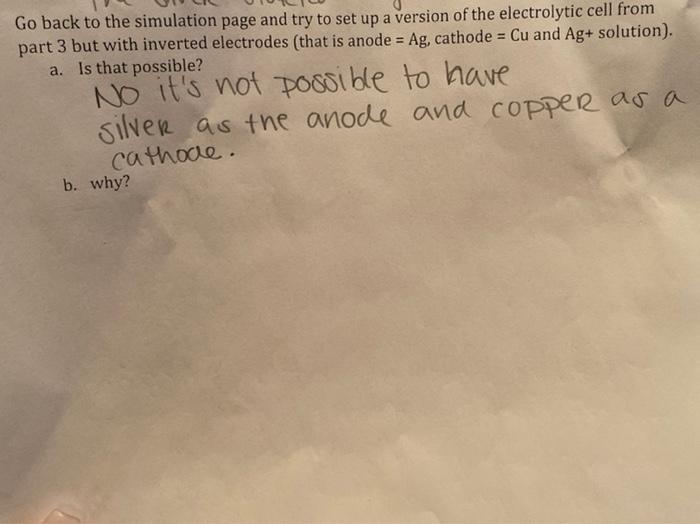 Go back to the simulation page and try to set up a version of the electrolytic cell from
part 3 but with inverted electrodes (that is anode = Ag, cathode = Cu and Ag+ solution).
a. Is that possible?
No it's not possible to have
silver as the anode and copper as a
cathode.
b. why?